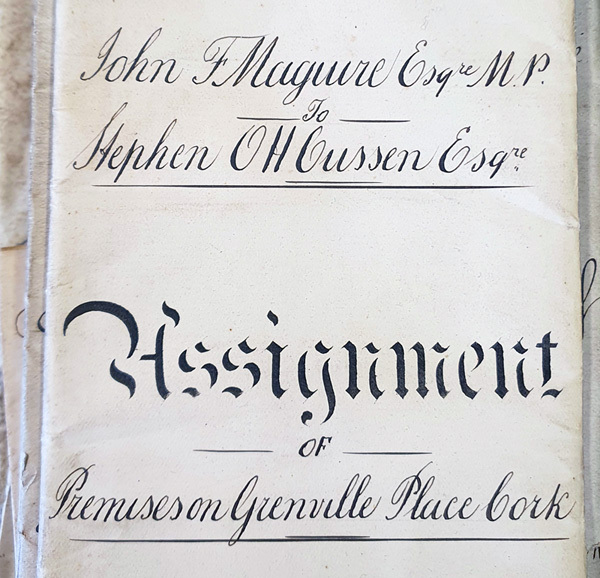 John F Maguire Esqre M.P.
To
Stephen O'H Cussen Esqre
Assignment
OF
Premises on Grenville Place Cork